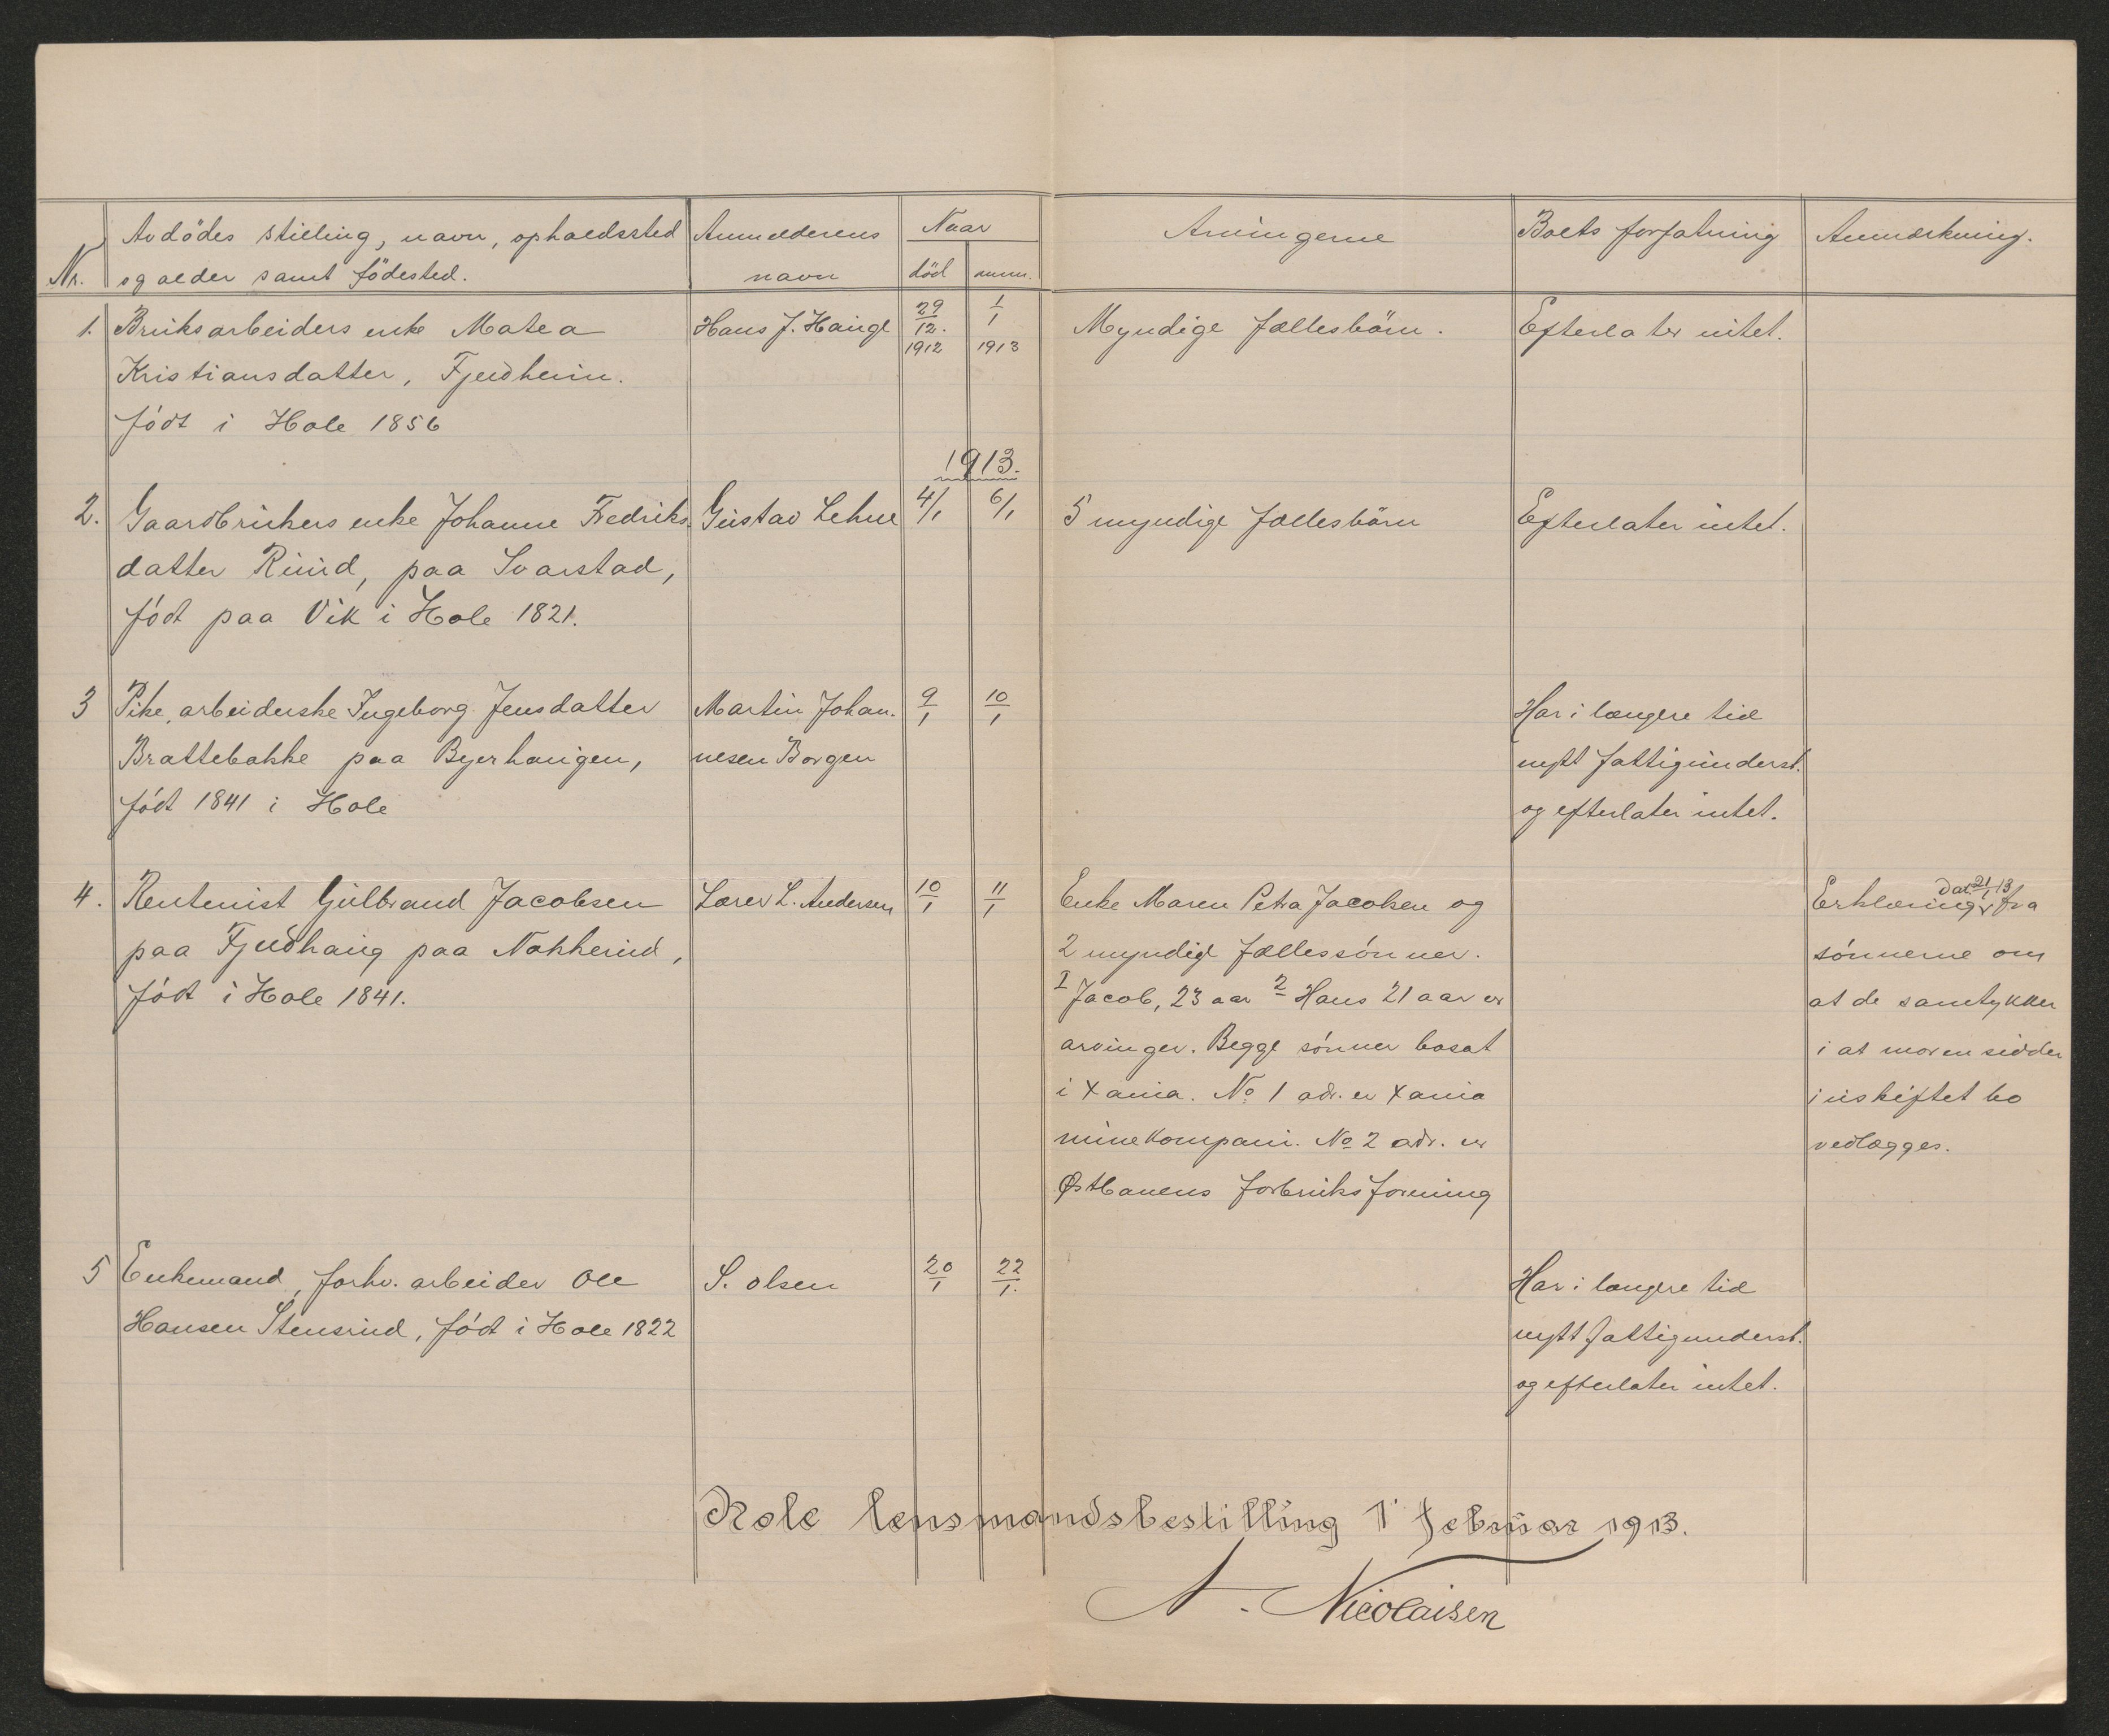 Nr.
Avdödes stilling, navn, opholdssted
og alder samt födested.
Anmelderens
navn
Naar
död
anm.
Arvingerne
Boets forfatning
Anmærkning.
1.
Bruksarbeiders enke Matea
Kristiansdatter, Fjeldheim.
født i Hole 1856
Hans J. Haugl
29/12. 1912
1/1 1913
Myndige fællesbörn.
Efterlater intet.
1913.
2.
Gaardbrukers enke Johanne Fredriks-
datter Ruud, paa Svarstad,
født paa Vik i Hole 1821.
Gustav Lehne
4/1
6/1
5 myndige fællesbörn
Efterlater intet.
3
Pike, arbeiderske Ingeborg Jensdatter
Brattebakke paa Byerhaugen,
født 1841 i Hole
Martin Johan-
nesen Borgen
9/1
10/1
Har i længere tid
nytt fattigunderst.
og efterlater intet.
4.
Rentenist Gulbrand Jacobsen
paa Fjeldhaug paa Nakkerud,
født i Hole 1841.
Lærer L. Andersen
10/1
11/1
Enke Maren Petra Jacobsen og
2 myndige fællessønner.
1 Jacob, 23 aar 2 Hans 21 aar er
arvinger. Begge sønner bosat
i Xania. No 1 adr. er Xania
minekompani. No 2 adr. er
Østbanens forbruksforening
Erklæring dat. 21/1 13 fra
sønnerne om
at de samtykker
i at moren sidder
i uskiftet bo
vedlægges.
5
Enkemand, forhv. arbeider Ole
Hansen Stensrud, født i Hole 1822
S. Olsen
20/1
22/1.
Har i længere tid
nytt fattigunderst.
og efterlater intet.
Hole lensmandsbestilling 1 februar 1913.
A. Nicolaisen